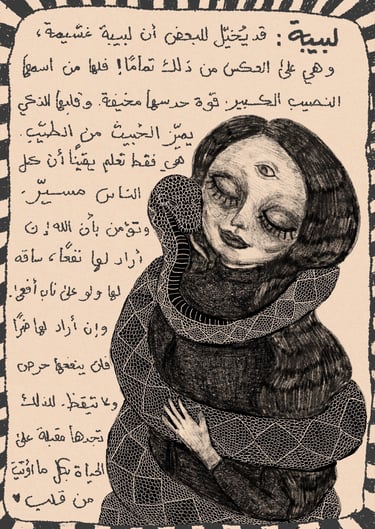 لبيبة: قد يُخيّل للبعض أن لبيبة غشيمة،
وهي على العكس من ذلك تمامًا! فلها من اسمها
النصيب الكبير. قوة حدسها مخيفة. وقلبها الذكي
يميّز الخبيث من الطيّب.
هي فقط تعلم يقينًا أن كل
الناس مسيّر.
وتؤمن بأن الله إن
أراد لها نفعًا، ساقه
لها ولو على ناب أفعى.
وإن أراد لها ضرًا
فلن ينفعها حرص
ولا تيقظ. لذلك
تجدها مقبلة على
الحياة بكل ما أوتيت
من قلب ♥